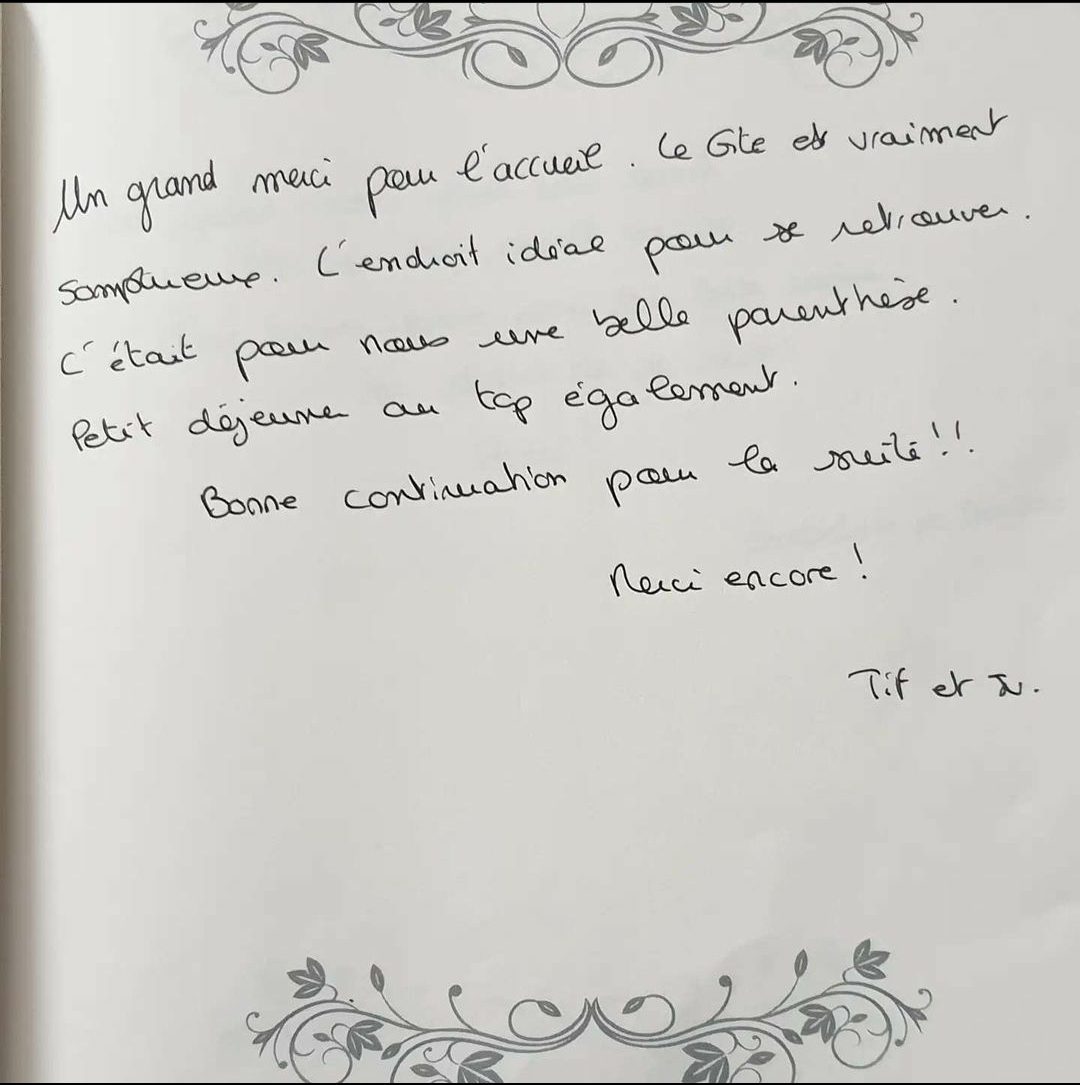 Un grand merci pour l'accueil. Le Gîte est vraiment
somptueux. L'endroit idéal pour se retrouver.
C'était pour nous une belle parenthèse.
Petit déjeuner au top également.
Bonne continuation pour la suite!!
Merci encore!
Tif et